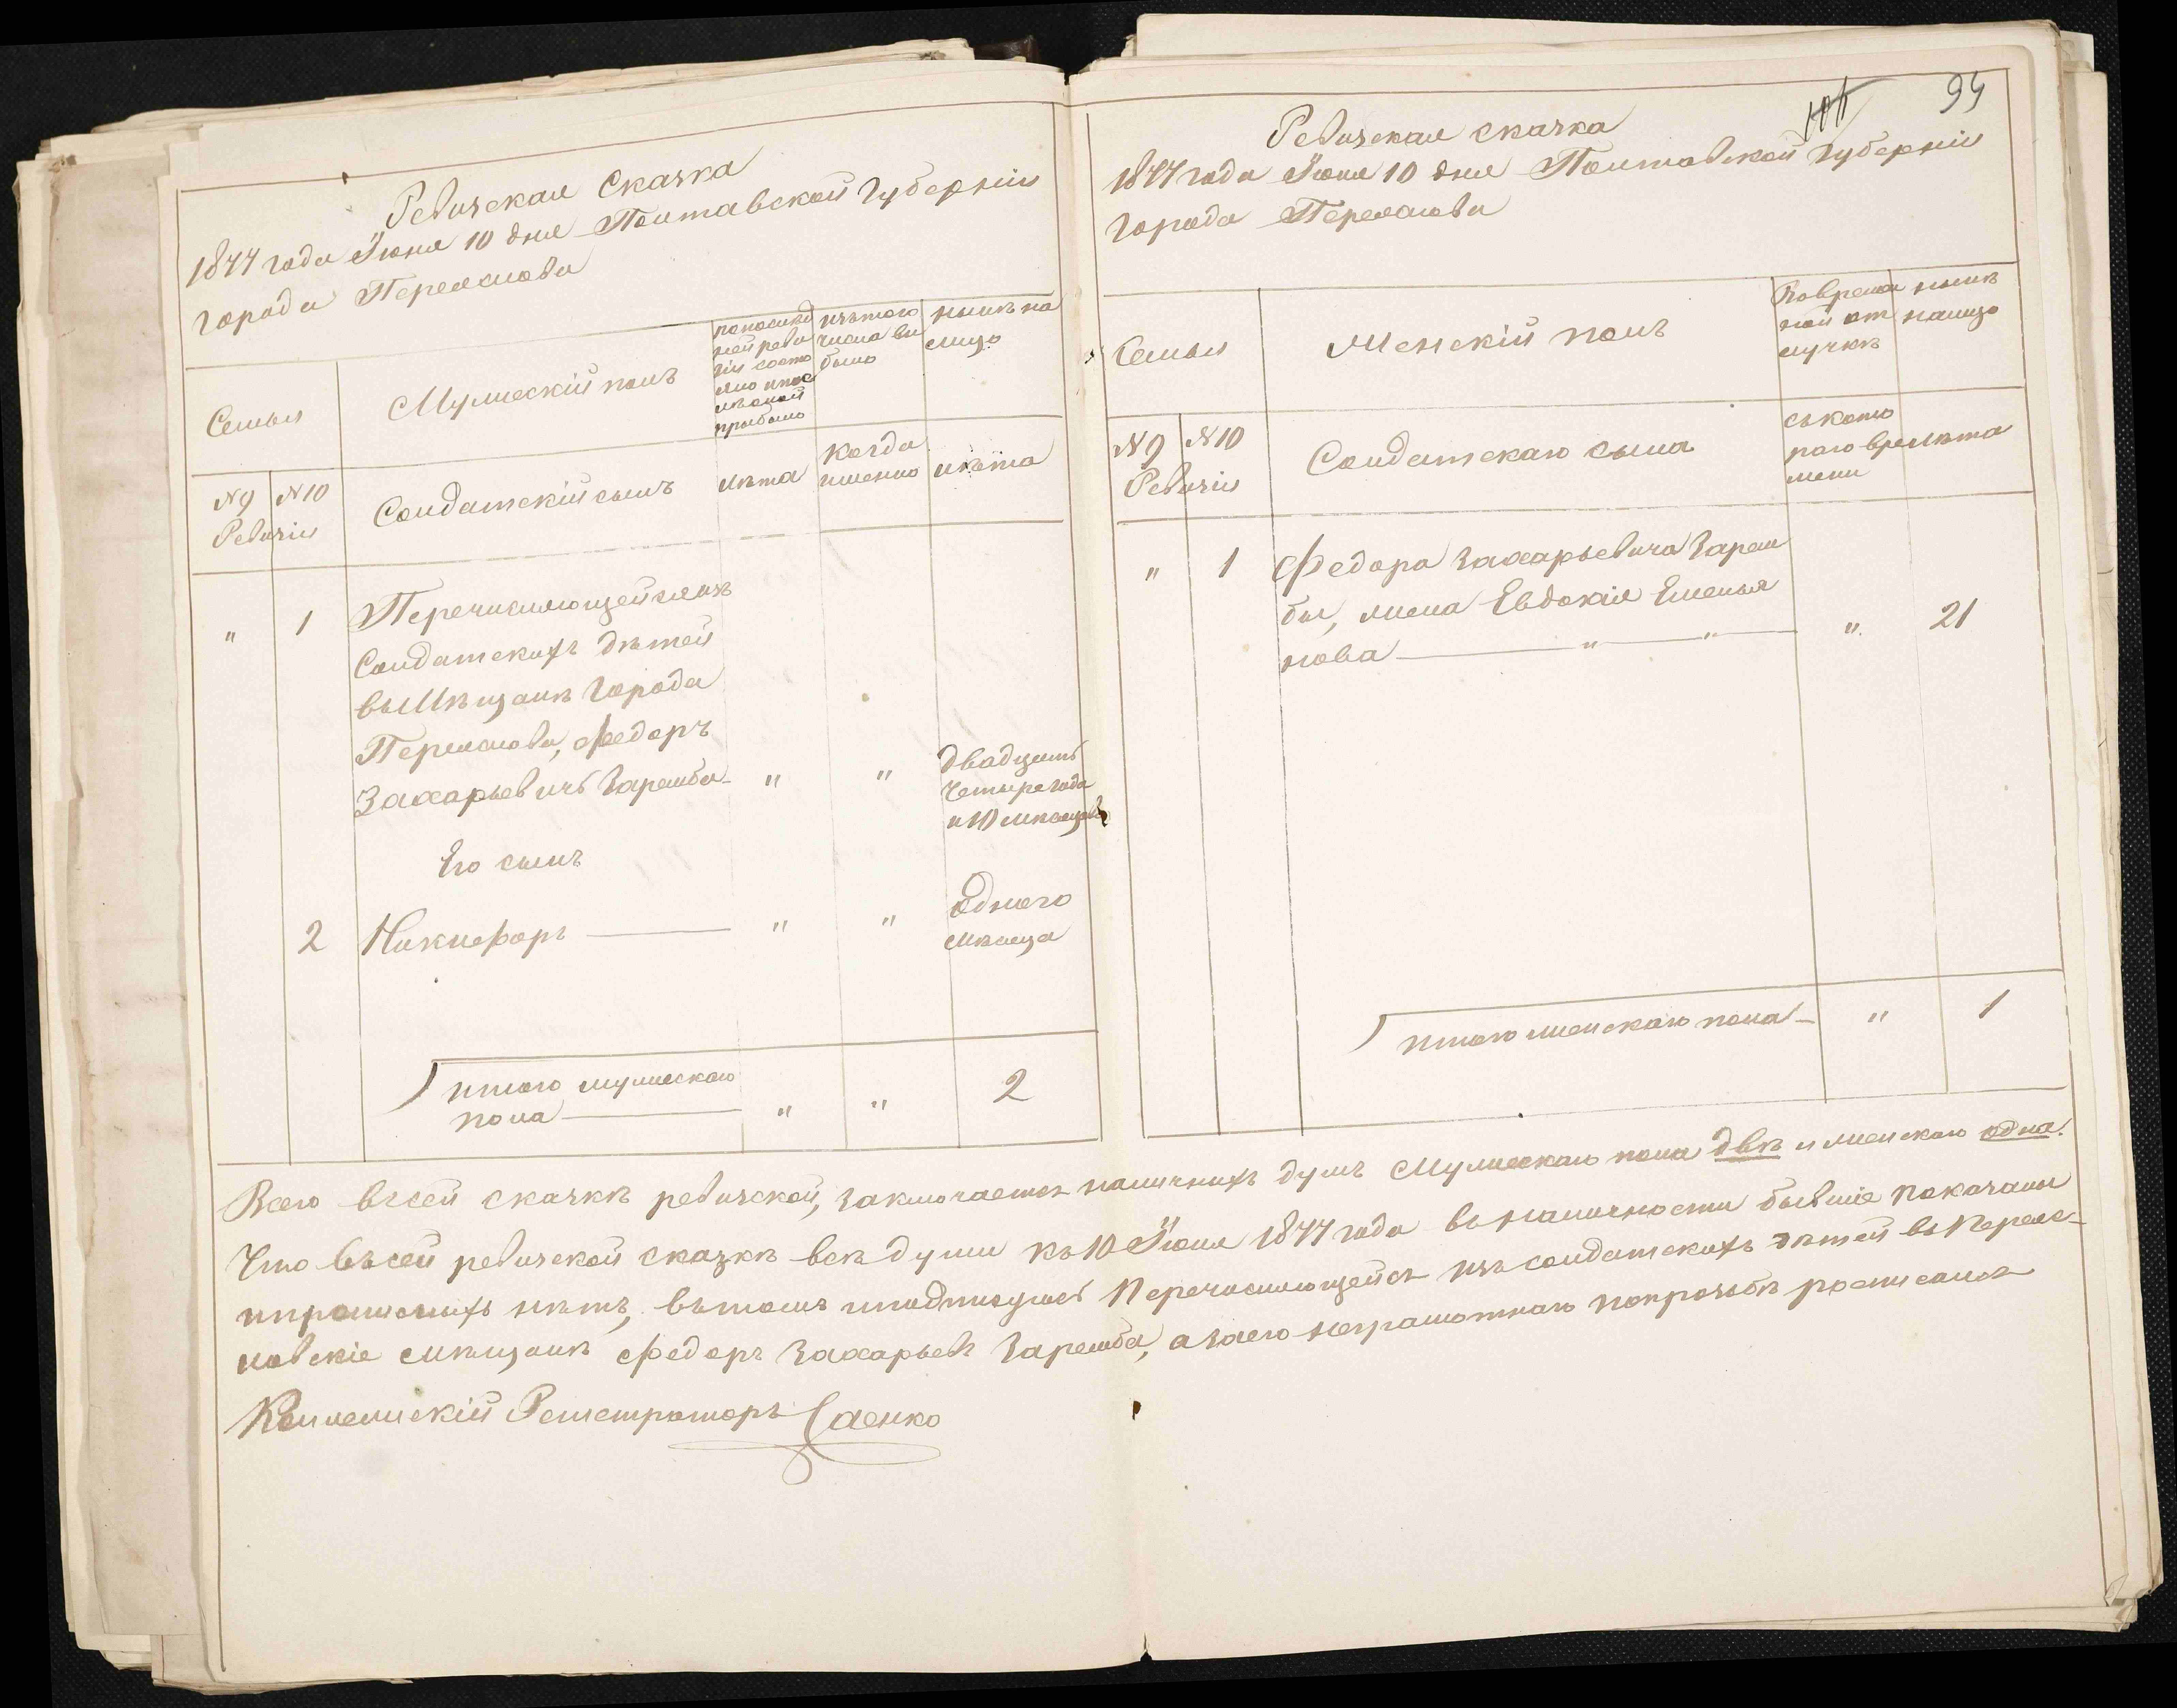 Ревизская Сказка
1877 года Июня 10 дня Полтавской Губерніи
города Переяслова
Семьи
Мужескій полъ
по послѣд
ней реви
зіи состо
яло и пос
лѣ оной
прибыло
изъ того
числа вы
было
нынѣ на
лицо
№ 9 № 10
Ревизіи
Солдатскій сынъ
лѣта
когда
именно
лѣта
" 1 Перечисляющейся изъ
Солдатскихъ дѣтей
въ Мѣщане города
Переяслова, Федоръ
Захарьевичъ Заремба " "
двадцать
четыре года
и 10 мѣсяцовъ
Его сынъ
2 Никифоръ " "
одного
мѣсяца
итого мужескаго
пола " " 2
94
Ревизская сказка
1877 года Июня 10 дня Полтавской Губерніи
города Переяслова
Семьи
Женскій полъ
Во времен
ной от
лучкѣ
нынѣ
налицо
№ 9 № 10
Ревизіи
Солдатскаго сына
съ кото
раго вре
мени
лѣта
" 1 Федора Захарьевича Зарем
бы, жена Евдокія Емелья
нова " " " 21
итого женскаго пола " 1
Всего въ сей сказкѣ ревизской, заключается наличныхъ душъ Мужескаго пола двѣ и женскаго одна.
Что въ сей ревизской сказкѣ всѣ души къ 10 Июня 1877 года въ наличности бывшіе показаны
и прописныхъ нѣтъ, въ томъ и подписуюсь Перечисляющейся изъ солдатскихъ дѣтей въ Переяс-
ловскіе мѣщане Федоръ Захарьевъ Заремба, а за его неграмотнаго по просьбѣ росписался
Коллежскій Регистраторъ Саенко